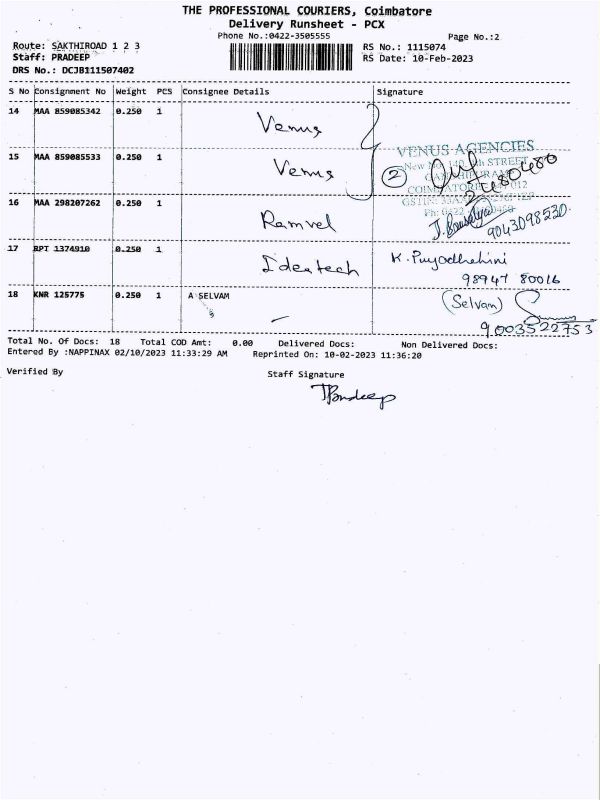 THE PROFESSIONAL COURIERS, Coimbatore
Delivery Runsheet - PCX
Phone No.:0422-3505555
Page No.:2
Route: SAKTHIROAD 1 2 3
RS No.: 1115074
Staff: PRADEEP
RS Date: 10-Feb-2023
DRS No.: DCJB111507402
S No Consignment No Weight PCS Consignee Details Signature
14 MAA 859085342 0.250 1 Venus
VENUS AGENCIES
15 MAA 859085533 0.250 1 Venus 2
16 MAA 298207262 0.250 1 Ramvel
9043098530
17 RPT 1374910 0.250 1 Ideatech K.
98947 80016
18 KNR 125775 0.250 1 A SELVAM (Selvam)
9003522753
Total No. Of Docs: 18 Total COD Amt: 0.00 Delivered Docs: Non Delivered Docs:
Entered By :NAPPINAX 02/10/2023 11:33:29 AM Reprinted On: 10-02-2023 11:36:20
Verified By Staff Signature